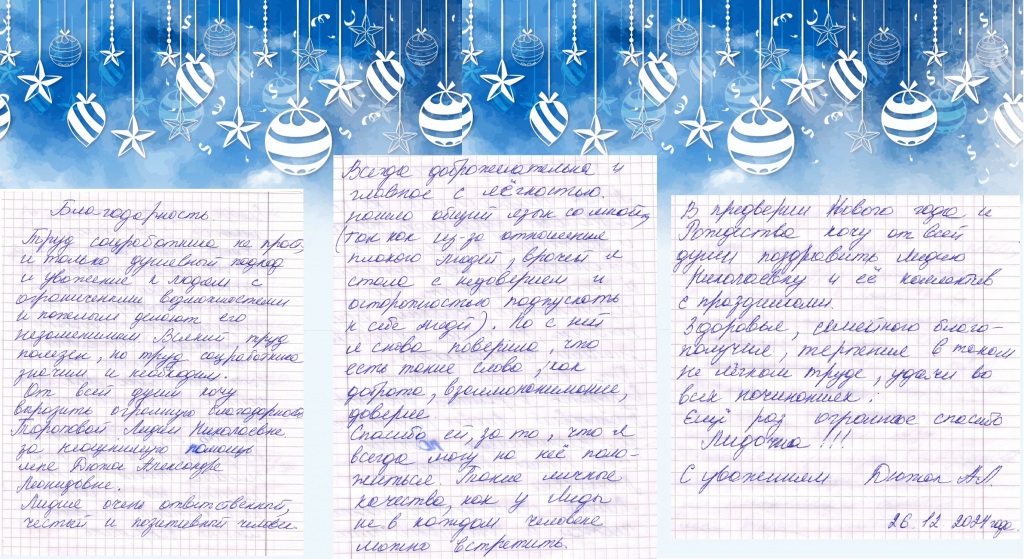 Благодарность.
Труд соцработника не прост,
и только душевный подход
и уважение к людям с
ограниченными возможностями
и пожилым делают его
незаменимым. Всякий труд
полезен, но труд соцработника
значим и необходим.
От всей души хочу
выразить огромную благодарность
Тороповой Лидии Николаевне
за неоценимую помощь
мне Дюжок Александре
Леонидовне.
Лидия очень ответственный,
честный и позитивный человек.
Всегда доброжелательна и
главное с лёгкостью.
нашла общий язык со мной,
(так как из-за отношения
плохого людей, врачей я
стала с недоверием и
осторожностью подпускать
к себе людей). Но с ней
я снова поверила, что
есть такие слова, как
доброта, взаимопонимание,
доверие
Спасибо ей, за то, что я
всегда могу на неё поло-
житься. Такие личные
качества, как у Лиды
не в каждом человеке
можно встретить.
В предверии Нового года и
Рождества хочу от всей
души поздравить Лидию
Николаевну и её коллектив
с праздниками.
Здоровья, семейного благо-
получия, терпения в таком
не лёгком труде, удачи во
всех начинаниях.
Ещё раз огромное спасибо
Лидочка!!!
С уважением Дюжок А.Л.
26.12.2024 года.